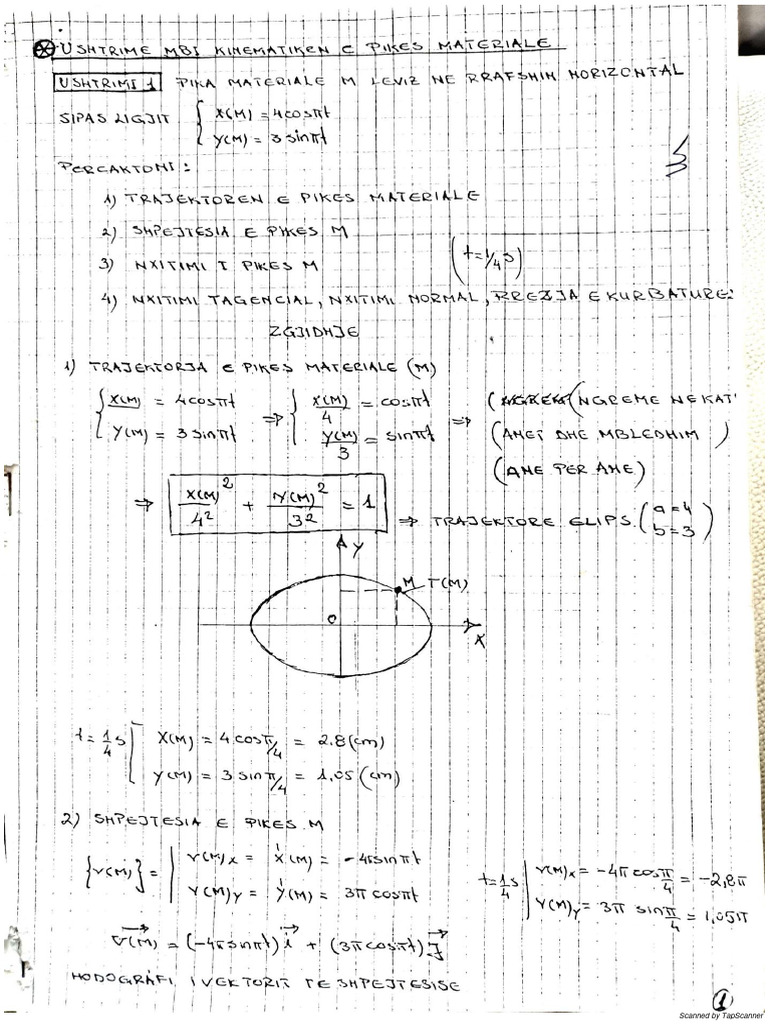 ⊛ USHTRIME MBI KINEMATIKEN E PIKES MATERIALE
USHTRIMI 1 PIKA MATERIALE M LEVIZ NE RRAFSHIN HORIZONTAL
SIPAS LIGJIT { X(M) = 4cosπt
Y(M) = 3 sinπt
PERCAKTONI:
1) TRAJEKTOREN E PIKES MATERIALE
2) SHPEJTESIA E PIKES M
3) NXITIMI T PIKES M (t=1/4 s)
4) NXITIMI TAGENCIAL, NXITIMI NORMAL, RREZJA E KURBATURES
ZGJIDHJE
1) TRAJEKTORJA E PIKES MATERIALE (M)
{ X(M) = 4cosπt ⇒ { X(M)/4 = cosπt ⇒ (NGREME NE KAT
Y(M) = 3 sinπt Y(M)/3 = sinπt (ANET DHE MBLEDHIM)
(ANE PER ANE)
⇒ X(M)²/4² + Y(M)²/3² = 1 ⇒ TRAJEKTORE ELIPS (a=4 b=3)
Y
M T(M)
O
X
t=1/4 s [ X(M) = 4 cosπ/4 = 2.8 (cm)
Y(M) = 3 sinπ/4 = 1,05 (cm)
2) SHPEJTESIA E PIKES M
{V(M)} = | V(M)x = Ẋ(M) = -4πsinπt
V(M)y = Ẏ(M) = 3π cosπt
t=1/4 s | V(M)x = -4π cosπ/4 = -2,8π
V(M)y = 3π sinπ/4 = 1,05π
V(M) = (-4πsinπt) i + (3πcosπt) J
HODOGRAFI I VEKTORIT TE SHPEJTESISE
1
Scanned by TapScanner